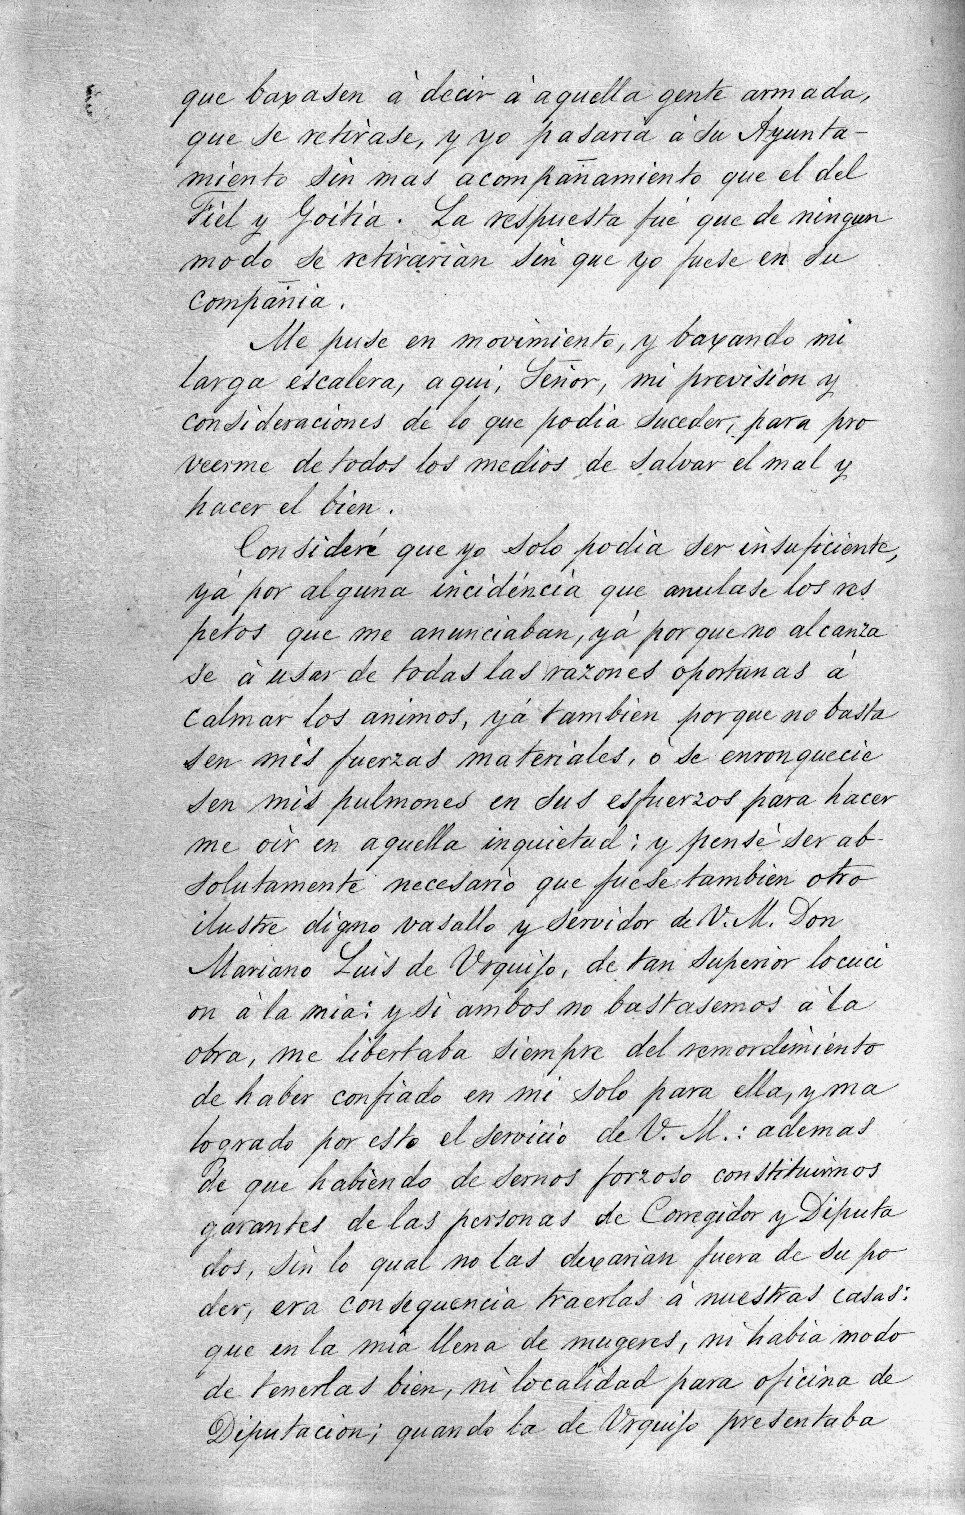 que baxasen à decir à aquella gente armada,
que se retirase, y yo pasaria à su Ayunta-
miento sin mas acompañamiento que el del
Fiel y Goitia. La respuesta fué que de ningun
modo se retirarian sin que yo fuese en su
compañia.
Me puse en movimiento, y baxando mi
larga escalera, aqui, Señor, mi prevision y
consideraciones de lo que podia suceder, para pro
veerme de todos los medios de salvar el mal y
hacer el bien.
Consideré que yo solo podia ser insuficiente,
yá por alguna incidéncia que anulase los res
petos que me anunciaban, yá porque no alcanza
se à usar de todas las razones oportunas à
calmar los animos, yá tambien porque no basta
sen mis fuerzas materiales, ó se enronquecie
sen mis pulmones en sus esfuerzos para hacer
me oir en aquella inquietud; y pensé ser ab-
solutamente necesario que fuese tambien otro
ilustre digno vasallo y servidor de V. M. Don
Mariano Luis de Urquijo, de tan superior locuci
on à la mia: y si ambos no bastasemos à la
obra, me libertaba siempre del remordimiento
de haber confiado en mi solo para ella, y ma
logrado por esto el servicio de V. M.: ademas
de que habiendo de sernos forzoso constituirnos
garantes de las personas de Corregidor y Diputa
dos, sin lo qual no las dexarian fuera de su po
der, era consequencia traerlas à nuestras casas:
que en la mia llena de mugeres, ni habia modo
de tenerlas bien, ni localidad para oficina de
Diputacion; quando la de Urquijo presentaba